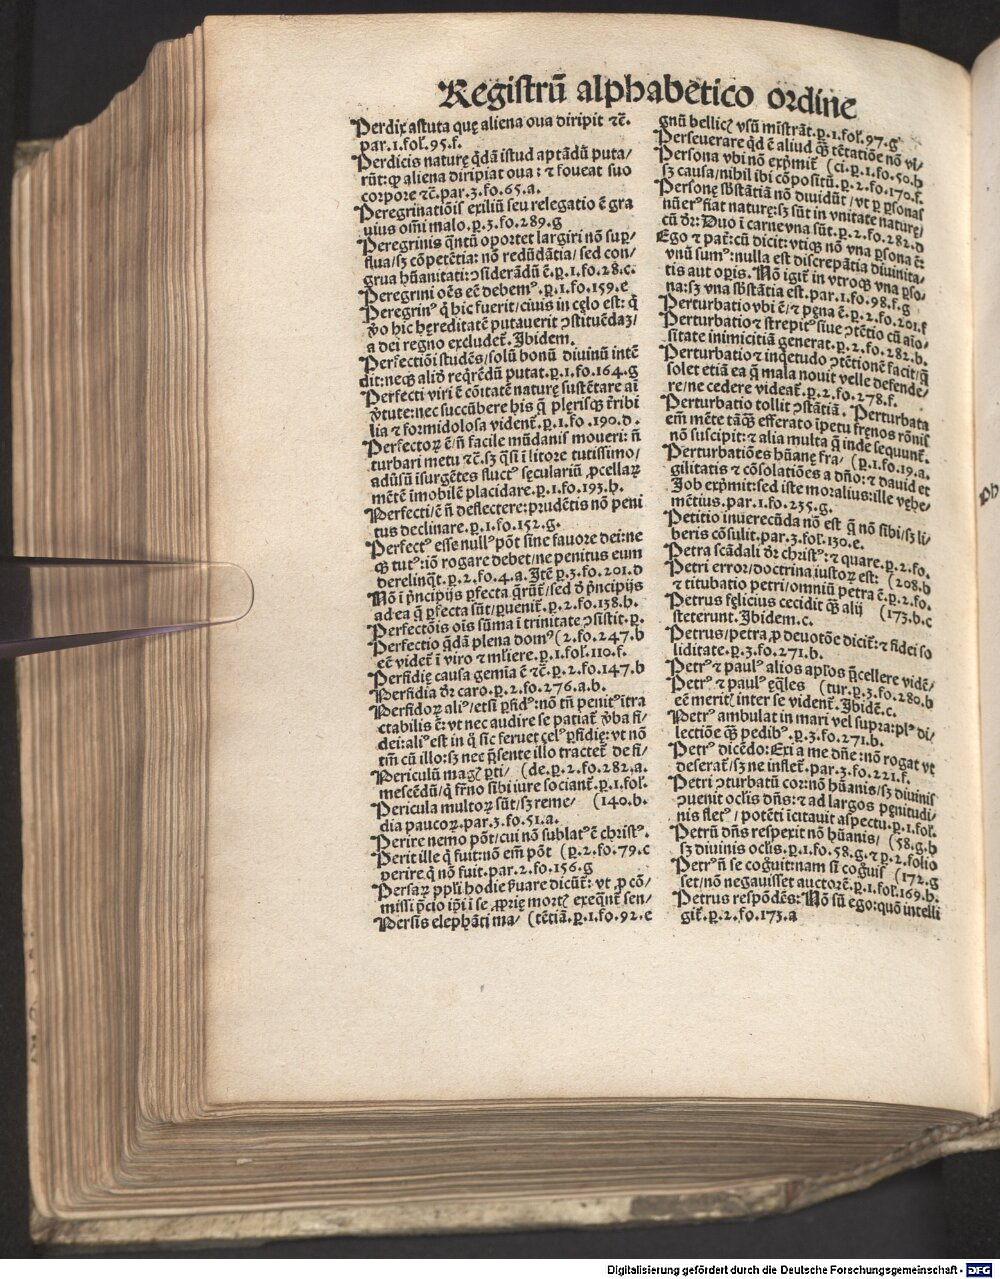 Registrũ alphabetico ordine
Perdix astuta quę aliena oua diripit ⁊c̃.
par.1.fol.95.f.
Perdicis naturę q̃dã istud aptãdũ puta/
rũt: ꝙ aliena diripiat oua: ⁊ foueat suo
corpore ⁊c̃.par.3.fo.65.a.
Peregrinatiõis exiliũ seu relegatio ẽ gra
uius om̃i malo.p.3.fo.289.g
Peregrinis q̃ntũ oportet largiri nõ sup̱/
flua/sꝫ cõpetẽtia: nõ redũdãtia/ sed con/
grua hũanitati: ɔsiderãdũ ẽ.p.1.fo.28.c.
Peregrini oẽs eẽ debemꝰ.p.1.fo.159.e
Peregrinꝰ q̃ hic fuerit/ciuis in cęlo est: q̃
ṽo hic hęreditatẽ putauerit ɔstituẽdaꝫ/
a dei regno excludet̃. Ibidem.
Perfectiõi studẽs/solũ bonũ diuinũ intẽ
dit: neqꝫ aliđ req̃rẽdũ putat.p.1.fo.164.g
Perfecti viri ẽ cõitatẽ naturę sustẽtare aĩ
ṽtute: nec succũbere his q̃ plęrisqꝫ t̃ribi
lia ⁊ formidolosa vident̃.p.1.fo.190.d.
Perfectoꝝ ẽ/ñ facile mũdanis moueri: ñ
turbari metu ⁊c̃.sꝫ q̃si ĩ litore tutissimo/
adũsũ ĩsurgẽtes fluctꝰ sęculariũ ꝓcellaꝝ
mẽtẽ imobilẽ placidare.p.1.fo.193.h.
Perfecti/ẽ ñ deflectere: prudẽtis nõ peni
tus declinare.p.1.fo.152.g.
Perfectꝰ esse nullꝰ põt sine fauore dei: ne
qꝫ tutꝰ: iõ rogare debet/ne penitus eum
derelinq̃t.p.2.fo.4.a. Itẽ p.3.fo.201.d
Nõ ĩ p̃ncipijs p̱fecta q̃rũt̃/sed đ p̃ncipijs
ad ea q̃ p̱fecta sũt/p̱uenit̃.p.2.fo.138.h.
Perfectõis oĩs sũma ĩ trinitate ɔsistit.p.
Perfectio q̃dã plena domꝰ (2.fo.247.b
eẽ videt̃ ĩ viro ⁊ mĩiere.p.1.fol.110.f.
Perfidię causa gemia ẽ ⁊c̃.p.2.fo.147.b
Perfidia đr caro.p.2.fo.276.a.b.
Perfidoꝝ aliꝰ/etsi p̱fidꝰ: nõ tñ penitꝰ ĩtra
ctabilis ẽ: vt nec audire se patiat̃ ṽba fi/
dei: aliꝰ est in q̃ sic feruet çelꝰ p̱fidię: vt nõ
tm̃ cũ illo: sꝫ nec p̃sente illo tractet̃ de fi/
Periculũ magꝭ p̱ti/ (de.p.2.fo.282.a.
mescẽdũ/q̃ fr̃no sibi iure sociant̃.p.1.fol.
Pericula multoꝝ sũt/sꝫ reme/ (140.b.
dia paucoꝝ.par.3.fo.51.a.
Perire nemo põt/cui nõ sublatꝰ ẽ christꝰ.
Perit ille q̃ fuit: nõ em̃ põt (p.2.fo.79.c
perire q̃ nõ fuit.par.2.fo.156.g
Persaꝝ pp̃li hodie ẽuare dicũt̃: vt ꝓ cõ/
missi p̃cio ip̃i ĩ se ꝓprię mortꝭ exeq̃nt̃ sen/
Persis elephãti ma/ (tẽtiã.p.1.fo.92.e
gnũ bellicꝭ vsũ mĩstrãt.p.1.fol.97.g
Perseuerare q̃d ẽ aliud qꝫ tẽtatiõe nõ vi/
Persona vbi nõ exp̃mit̃ (ci.p.1.fo.50.h
sꝫ causa/nihil ibi cõpositũ.p.2.fo.170.f.
Personę sb̃stãtiã nõ diuidũt/vt p̱ p̱sonas
nũerꝰ fiat naturę: sꝫ sũt in vnitate naturę/
cũ đr: Duo ĩ carne vna sũt.p.2.fo.282.d
Ego ⁊ pat̃: cũ dicit: vtiqꝫ nõ vna p̱sona ẽ:
vnũ sumꝰ: nulla est discrepãtia diuinita/
tis aut op̱is. Nõ igit̃ in vtroqꝫ vna p̱so/
na: sꝫ vna sb̃stãtia est.par.1.fo.98.f.g
Perturbatio vbi ẽ/⁊ pęna ẽ.p.2.fo.201.f
Perturbatio ⁊ strepitꝰ siue ɔtẽtio cũ aĩo/
sitate inimicitiã generat.p.2.fo.282.b.
Perturbatio ⁊ inq̃etudo ɔtẽtionẽ facit/q̃
solet etiã ea q̃ mala nouit velle defende/
re/ne cedere videat̃.p.2.fo.278.f.
Perturbatio tollit ɔstãtiã. Perturbata
em̃ mẽte tãqꝫ efferato ĩpetu fręnos rõnis
nõ suscipit: ⁊ alia multa q̃ inde sequunt̃.
Perturbatiões hũanę fra/ (p.1.fo.19.a.
gilitatis ⁊ cõsolatiões a dño: ⁊ dauid et
Job exp̃mit: sed iste moralius: ille vęhe/
mẽtius.par.1.fo.235.g.
Petitio inuerecũda nõ est q̃ nõ sibi/sꝫ li/
beris cõsulit.par.3.fol.130.e.
Petra scãdali đr christꝰ: ⁊ quare.p.2.fo.
Petri error/doctrina iustoꝝ est: (208.b
⁊ titubatio petri/omniũ petra ẽ.p.2.fo.
Petrus fęlicius cecidit qꝫ alij (173.b.c
steterunt. Ibidem.c.
Petrus/petra/ꝓ deuotõe dicit̃: ⁊ fidei so
liditate.p.3.fo.271.b.
Petrꝰ ⁊ paulꝰ alios ap̃los p̃cellere vidẽ/
Petrꝰ ⁊ paulꝰ ęq̃les (tur.p.3.fo.280.b
eẽ meritꝭ inter se vident̃. Ibidẽ.c.
Petrꝰ ambulat in mari vel supra: plꝰ di/
lectiõe qꝫ pedibꝰ.p.3.fo.271.b.
Petrꝰ dicẽdo: Exi a me dñe: nõ rogat vt
deserat̃/sꝫ ne inflet̃.par.3.fo.221.f.
Petri ɔturbatũ cor: nõ hũanis/sꝫ diuinis
ɔuenit ocĩis dñs: ⁊ ad largos pęnitudi/
nis fletꝰ/potẽti ĩcitauit aspectu.p.1.fol.
Petrũ dñs respexit nõ hũanis/ (58.g.h
sꝫ diuinis ocĩis.p.1.fo.58.g.⁊ p.2.folio
Petrꝰ ñ se cog̃uit: nam si cog̃uis̃ (172.g
set/nõ negauisset auctorẽ.p.1.fol.169.h.
Petrus respõdẽs: Nõ sũ ego: quõ intelli
git̃.p.2.fo.173.a
Digitalisierung gefördert durch die Deutsche Forschungsgemeinschaft - DFG